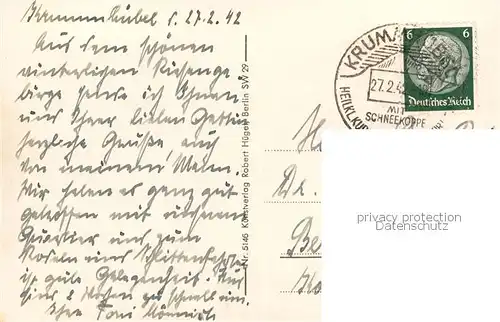 Krummhübel d. 27.2.42
Aus dem schönen
winterlichen Riesenge-
birge sende ich Ihnen
und Ihrer lieben Gattin
herzliche Grüße, auch
von meinem Mann.
Wir haben es ganz gut
getroffen mit unserem
Quartier und zum
Rodeln und Schlittenfahren
ist gute Gelegenheit. Nur
sind 2 Wochen zu schnell um.
Ihre Toni
Nr. 5146 Kunstverlag Robert Hügen Berlin SW 29
KRUMM
27.2.42
MIT
SCHNEEKOPPE
6 6
Deutsches Reich
Dr.
Be
privacy protection